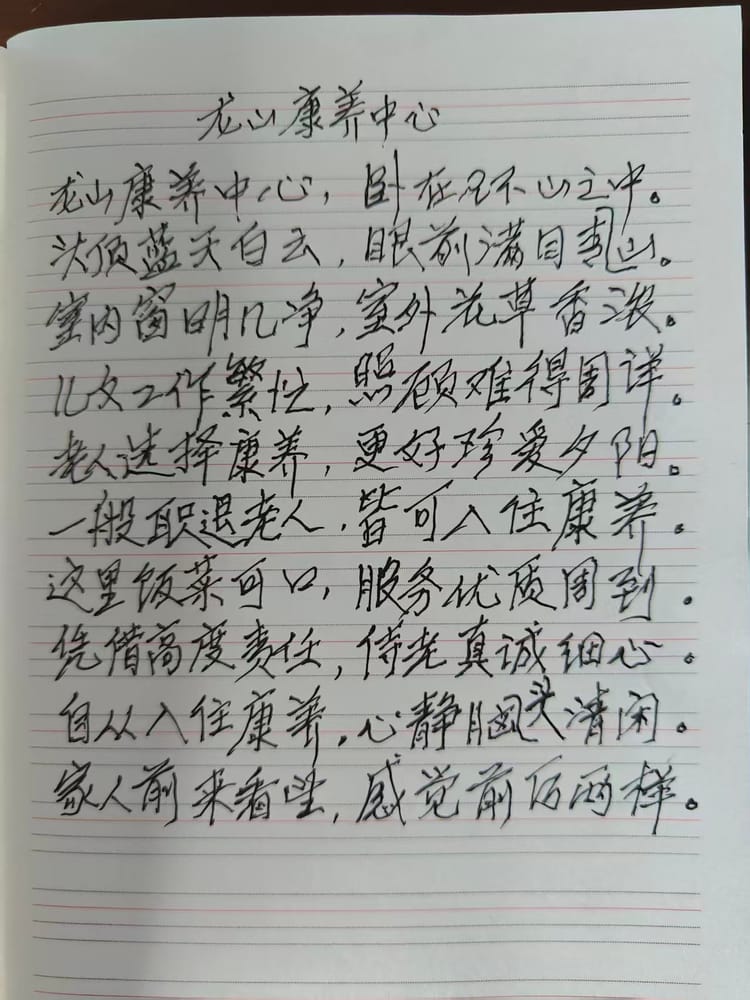 龙山康养中心
龙山康养中心，卧在尺不山之中。
头顶蓝天白云，眼前满目山。
室内窗明几净，室外花草香浓。
儿女工作繁忙，照顾难得周详。
老人选择康养，更好珍爱夕阳。
一般职退老人，皆可入住康养。
这里饭菜可口，服务优质周到.
凭借高度责任，侍老真诚细心.
自从入住康养，心静脑头清闲.
家人前来看望，感觉前后两样。